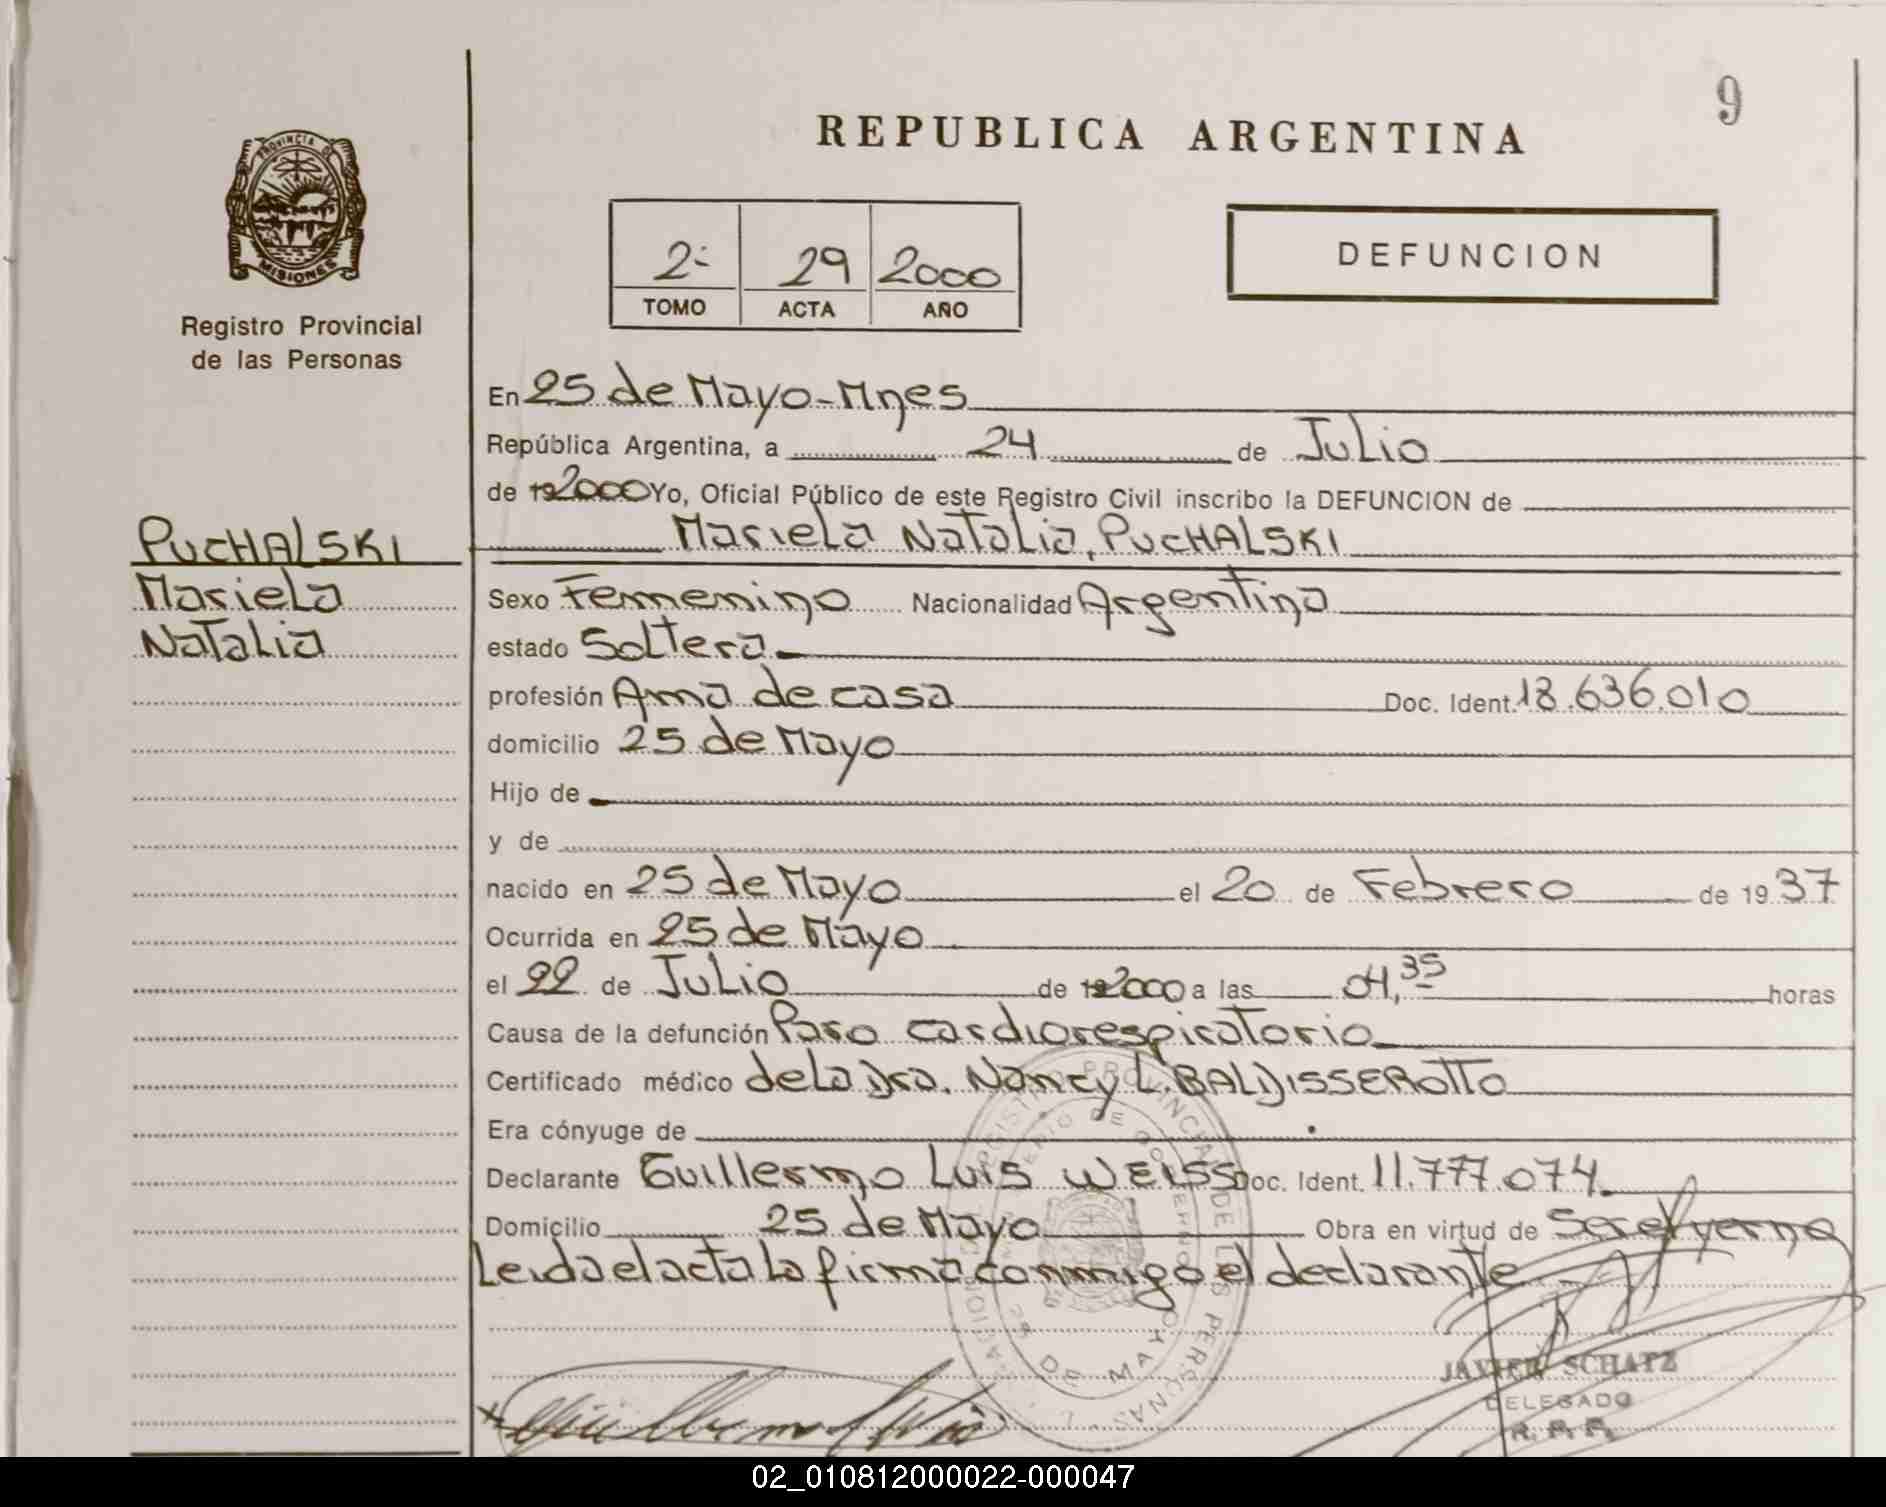 9
REPUBLICA ARGENTINA
PROVINCIA DE
MISIONES
Registro Provincial
de las Personas
2- 29 2000
TOMO ACTA AÑO
DEFUNCION
En 25 de Mayo-Mnes
República Argentina, a 24 de Julio
de 19 2000 Yo, Oficial Público de este Registro Civil inscribo la DEFUNCION de
Mariela Natalia, PUCHALSKI
PUCHALSKI
Mariela
Natalia
Sexo Femenino Nacionalidad Argentina
estado Soltera
profesión Ama de casa Doc. Ident. 18.636.010
domicilio 25 de Mayo
Hijo de
y de
nacido en 25 de Mayo el 20 de Febrero de 19 37
Ocurrida en 25 de Mayo
el 22 de Julio de 19 2000 a las 04,35 horas
Causa de la defunción Paro cardiorespiratorio
Certificado médico de la Dra. Nancy L. BALDISSEROTTO
Era cónyuge de
Declarante Guillermo Luis WEISS Doc. Ident. 11.777.074.
Domicilio 25 de Mayo Obra en virtud de Ser el yerno
Leida el acta la firma conmigo el declarante
REGISTRO PROVINCIAL DE LAS PERSONAS
25 DE MAYO
JAVIER SCHATZ
DELEGADO
R. P. P.
02_010812000022-000047